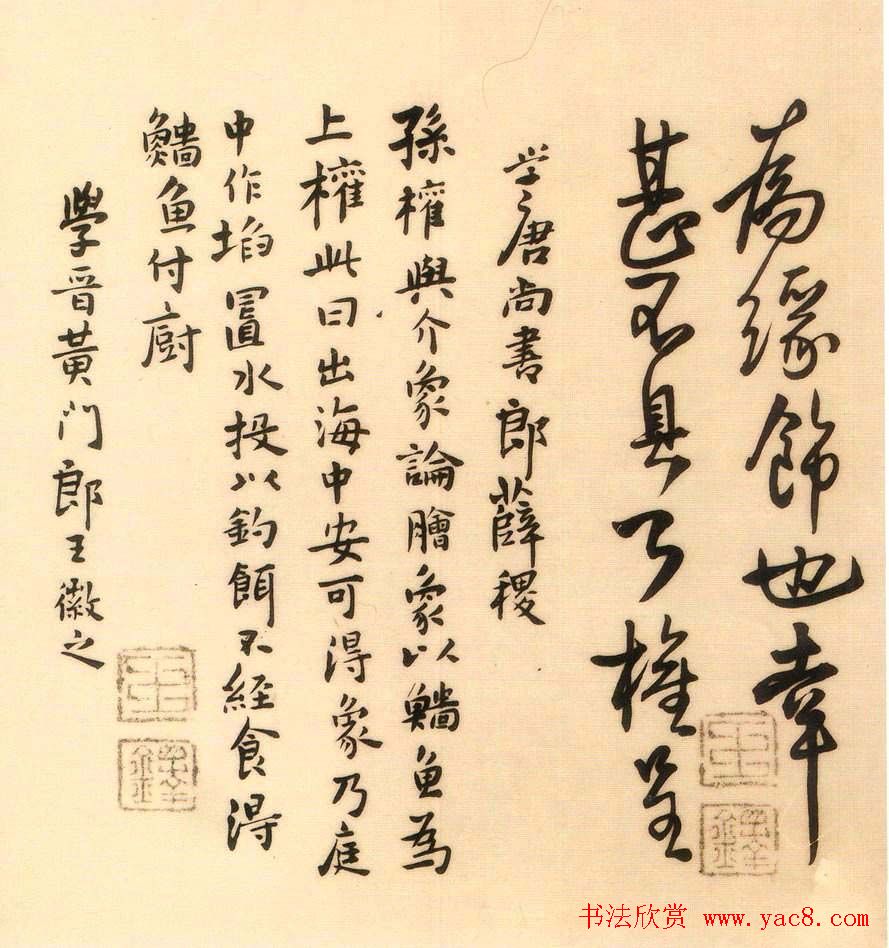 緣飾也幸
甚不具權呈
学唐尚書郎薛稷
孫權與介象論膾象以鯔魚為
上權此曰出海中安可得象乃庭
中作埳置水投以鈎餌不經食得
鯔魚付廚
學晉黃門郎王徽之
王
鐸
王
鐸
书法欣赏 www.yac8.com